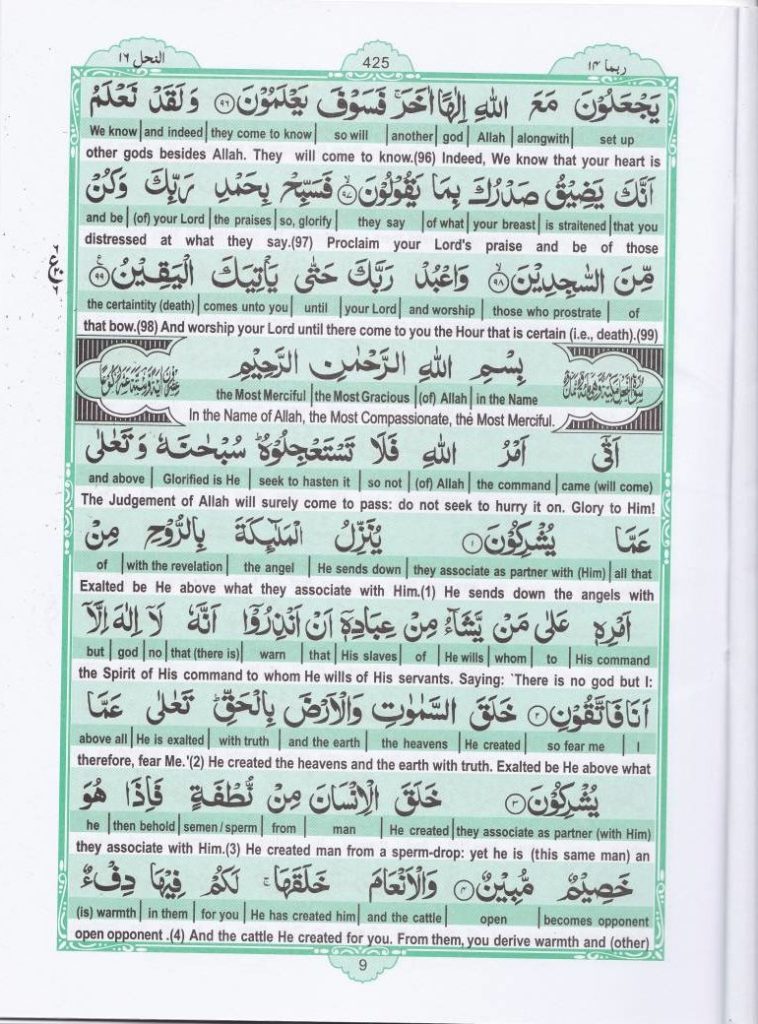 ربما ۱۴
425
النحل ۱۶
يَجْعَلُوْنَ مَعَ اللّٰهِ اِلٰهًا اٰخَرَ ۚ فَسَوْفَ يَعْلَمُوْنَ ﴿۹۶﴾ وَ لَقَدْ نَعْلَمُ
We know | and indeed | they come to know | so will | another | god | Allah | alongwith | set up
other gods besides Allah. They will come to know.(96) Indeed, We know that your heart is
اَنَّكَ يَضِيْقُ صَدْرُكَ بِمَا يَقُوْلُوْنَ ﴿۹۷﴾ فَسَبِّحْ بِحَمْدِ رَبِّكَ وَكُنْ
and be | (of) your Lord | the praises | so, glorify | they say | of what | your breast | is straitened | that you
distressed at what they say.(97) Proclaim your Lord's praise and be of those
مِّنَ السّٰجِدِيْنَ ﴿۹۸﴾ وَاعْبُدْ رَبَّكَ حَتّٰى يَاْتِيَكَ الْيَقِيْنُ ﴿۹۹﴾
the certaintity (death) | comes unto you | until | your Lord | and worship | those who prostrate | of
that bow.(98) And worship your Lord until there come to you the Hour that is certain (i.e., death).(99)
بِسْمِ اللّٰهِ الرَّحْمٰنِ الرَّحِيْمِ
the Most Merciful | the Most Gracious | (of) Allah | in the Name
In the Name of Allah, the Most Compassionate, the Most Merciful.
اَتٰٓى اَمْرُ اللّٰهِ فَلَا تَسْتَعْجِلُوْهُ ؕ سُبْحٰنَهٗ وَ تَعٰلٰى
and above | Glorified is He | seek to hasten it | so not | (of) Allah | the command | came (will come)
The Judgement of Allah will surely come to pass: do not seek to hurry it on. Glory to Him!
عَمَّا يُشْرِكُوْنَ ﴿۱﴾ يُنَزِّلُ الْمَلٰٓئِكَةَ بِالرُّوْحِ مِنْ
of | with the revelation | the angel | He sends down | they associate as partner with (Him) | all that
Exalted be He above what they associate with Him.(1) He sends down the angels with
اَمْرِهٖ عَلٰى مَنْ يَّشَآءُ مِنْ عِبَادِهٖٓ اَنْ اَنْذِرُوْٓا اَنَّهٗ لَآ اِلٰهَ اِلَّآ
but | god | no | that (there is) | warn | that | His slaves | of | He wills | whom | to | His command
the Spirit of His command to whom He wills of His servants. Saying: `There is no god but I:
اَنَا فَاتَّقُوْنِ ﴿۲﴾ خَلَقَ السَّمٰوٰتِ وَالْاَرْضَ بِالْحَقِّ ؕ تَعٰلٰى عَمَّا
above all | He is exalted | with truth | and the earth | the heavens | He created | so fear me | I
therefore, fear Me.'(2) He created the heavens and the earth with truth. Exalted be He above what
يُشْرِكُوْنَ ﴿۳﴾ خَلَقَ الْاِنْسَانَ مِنْ نُّطْفَةٍ فَاِذَا هُوَ
he | then behold | semen/sperm | from | man | He created | they associate as partner (with Him)
they associate with Him.(3) He created man from a sperm-drop: yet he is (this same man) an
خَصِيْمٌ مُّبِيْنٌ ﴿۴﴾ وَالْاَنْعَامَ خَلَقَهَا ۚ لَكُمْ فِيْهَا دِفْءٌ
(is) warmth | in them | for you | He has created him | and the cattle | open | becomes opponent
open opponent .(4) And the cattle He created for you. From them, you derive warmth and (other)
9